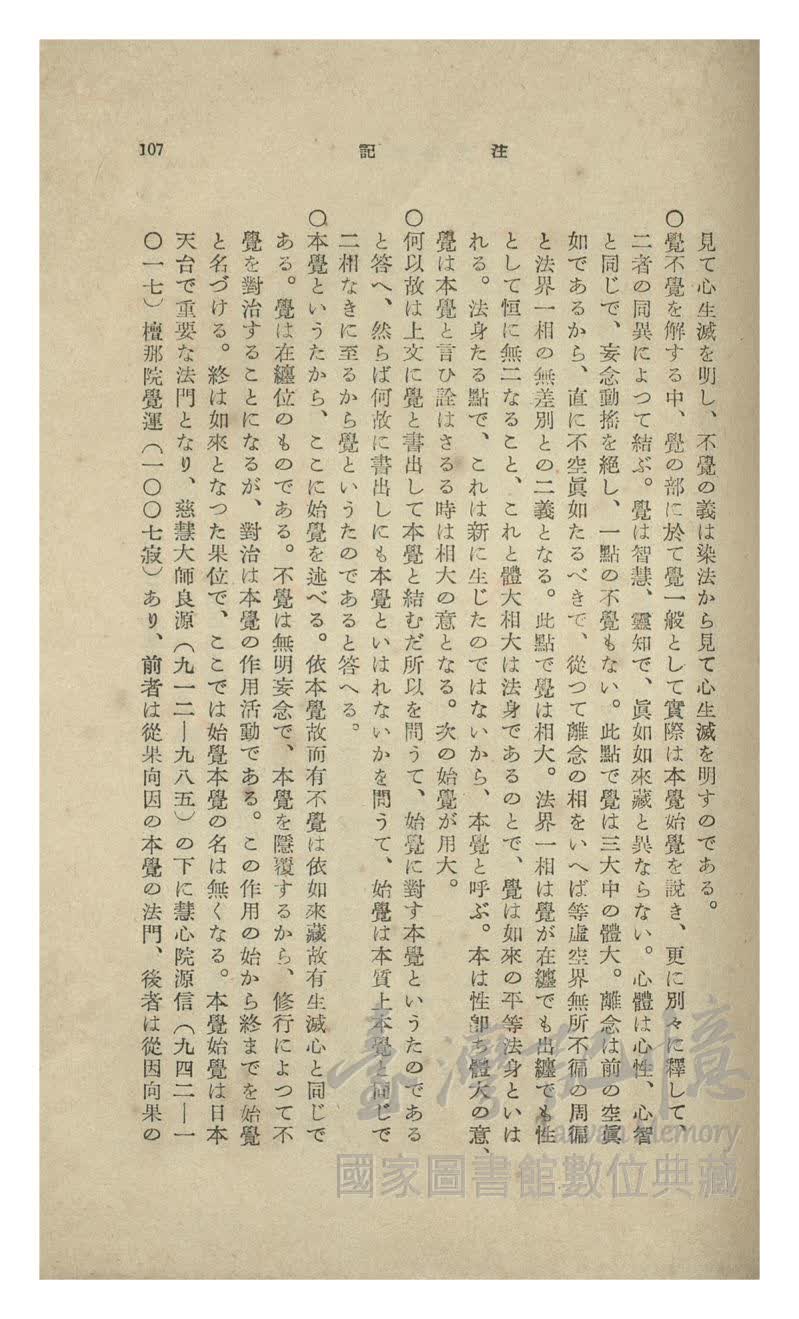 注記
107
見て心生滅を明し、不覺の義は染法から見て心生滅を明すのである。
〇覺不覺を解する中、覺の部に於て覺一般として實際は本覺始覺を説き、更に別々に釋して、
二者の同異によつて結ぶ。覺は智慧、靈知で、眞如如來藏と異ならない。心體は心性、心智
と同じで、妄念動搖を絶し、一點の不覺もない。此點で覺は三大中の體大。離念は前の空眞
如であるから、直に不空眞如たるべきで、從つて離念の相をいへば等虛空界無所不徧の周徧
と法界一相の無差別との二義となる。此點で覺は相大。法界一相は覺が在纏でも出纏でも性
として恒に無二なること、これと體大相大は法身であるのとで、覺は如來の平等法身といは
れる。法身たる點で、これは新に生じたのではないから、本覺と呼ぶ。本は性卽ち體大の意、
覺は本覺と言ひ詮はさるる時は相大の意となる。次の始覺が用大。
〇何以故は上文に覺と書出して本覺と結むだ所以を問うて、始覺に對す本覺というたのである
と答へ、然らば何故に書出しにも本覺といはれないかを問うて、始覺は本質上本覺と同じで
二相なきに至るから覺というたのであると答へる。
〇本覺というたから、ここに始覺を述べる。依本覺故而有不覺は依如來藏故有生滅心と同じで
ある。覺は在纏位のものである。不覺は無明妄念で、本覺を隱覆するから、修行によつて不
覺を對治することになるが、對治は本覺の作用活動である。この作用の始から終までを始覺
と名づける。終は如來となつた果位で、ここでは始覺本覺の名は無くなる。本覺始覺は日本
天台で重要な法門となり、慈慧大師良源（九一二—九八五）の下に慧心院源信（九四二—一
〇一七）檀那院覺運（一〇〇七寂）あり、前者は從果向因の本覺の法門、後者は從因向果の
臺灣記憶
Taiwan Memory
國家圖書館數位典藏